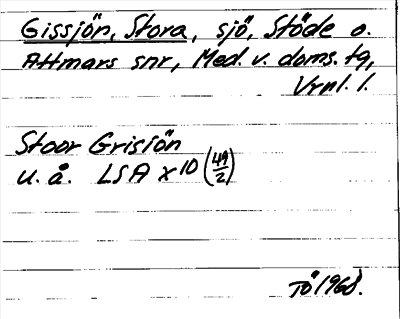 Gissjön, Stora, sjö, Stöde o.
Attmars snr, Med. v. doms. tg,
Vrnl. l.
Stoor Grisiön
u. å. LSA X10 (49/2)
TÖ 1968.